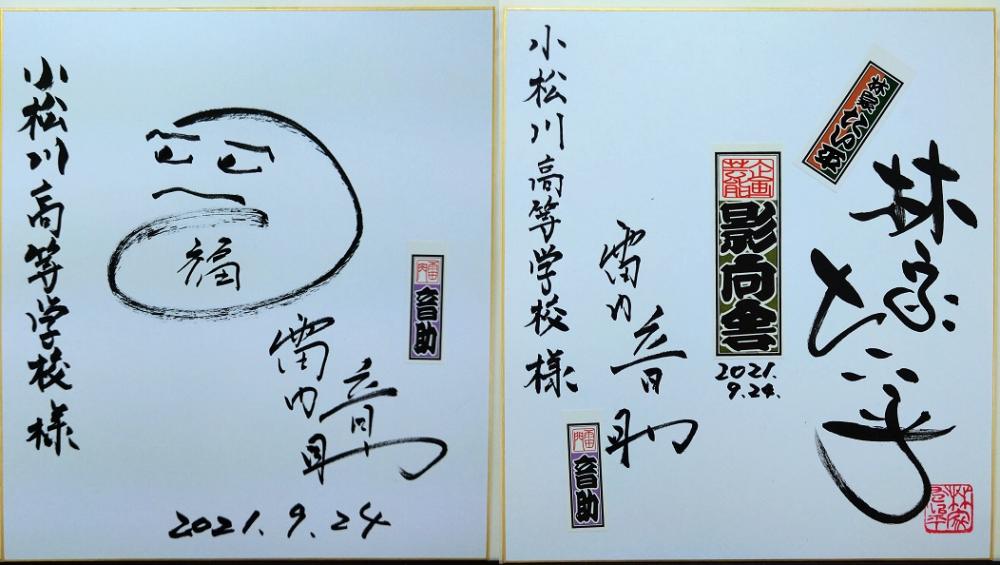 小松川高等学校様
福
雷門音助
雷門
音助
2021.9.24
小松川高等学校様
雷門音助
雷門
音助
企画
芸能
影向舎
2021.
9.24.
林家ひろ平
林家ひろ平